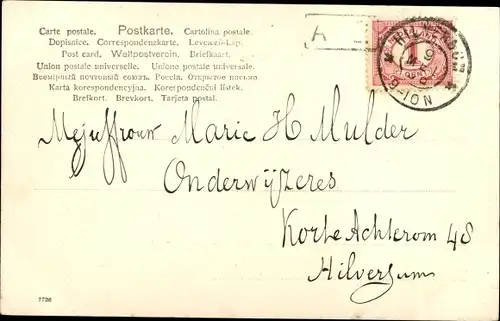 Carte postale. Postkarte. Cartolina postale.
Dopisnice. Correspondenzkarte. Levelező-Lap.
Post card. Weltpostverein. Briefkaart.
Union postale universelle. Unione postale universale.
Всемірный почтовый союзъ. Россія. Открытое письмо.
Karta korespondencyjna. Korespondenční lístek.
Brefkort. Brevkort. Tarjeta postal.
1
CENT
Mejuffrouw Marie H Mulder
Onderwijzeres
Korte Achterom 48
Hilversum